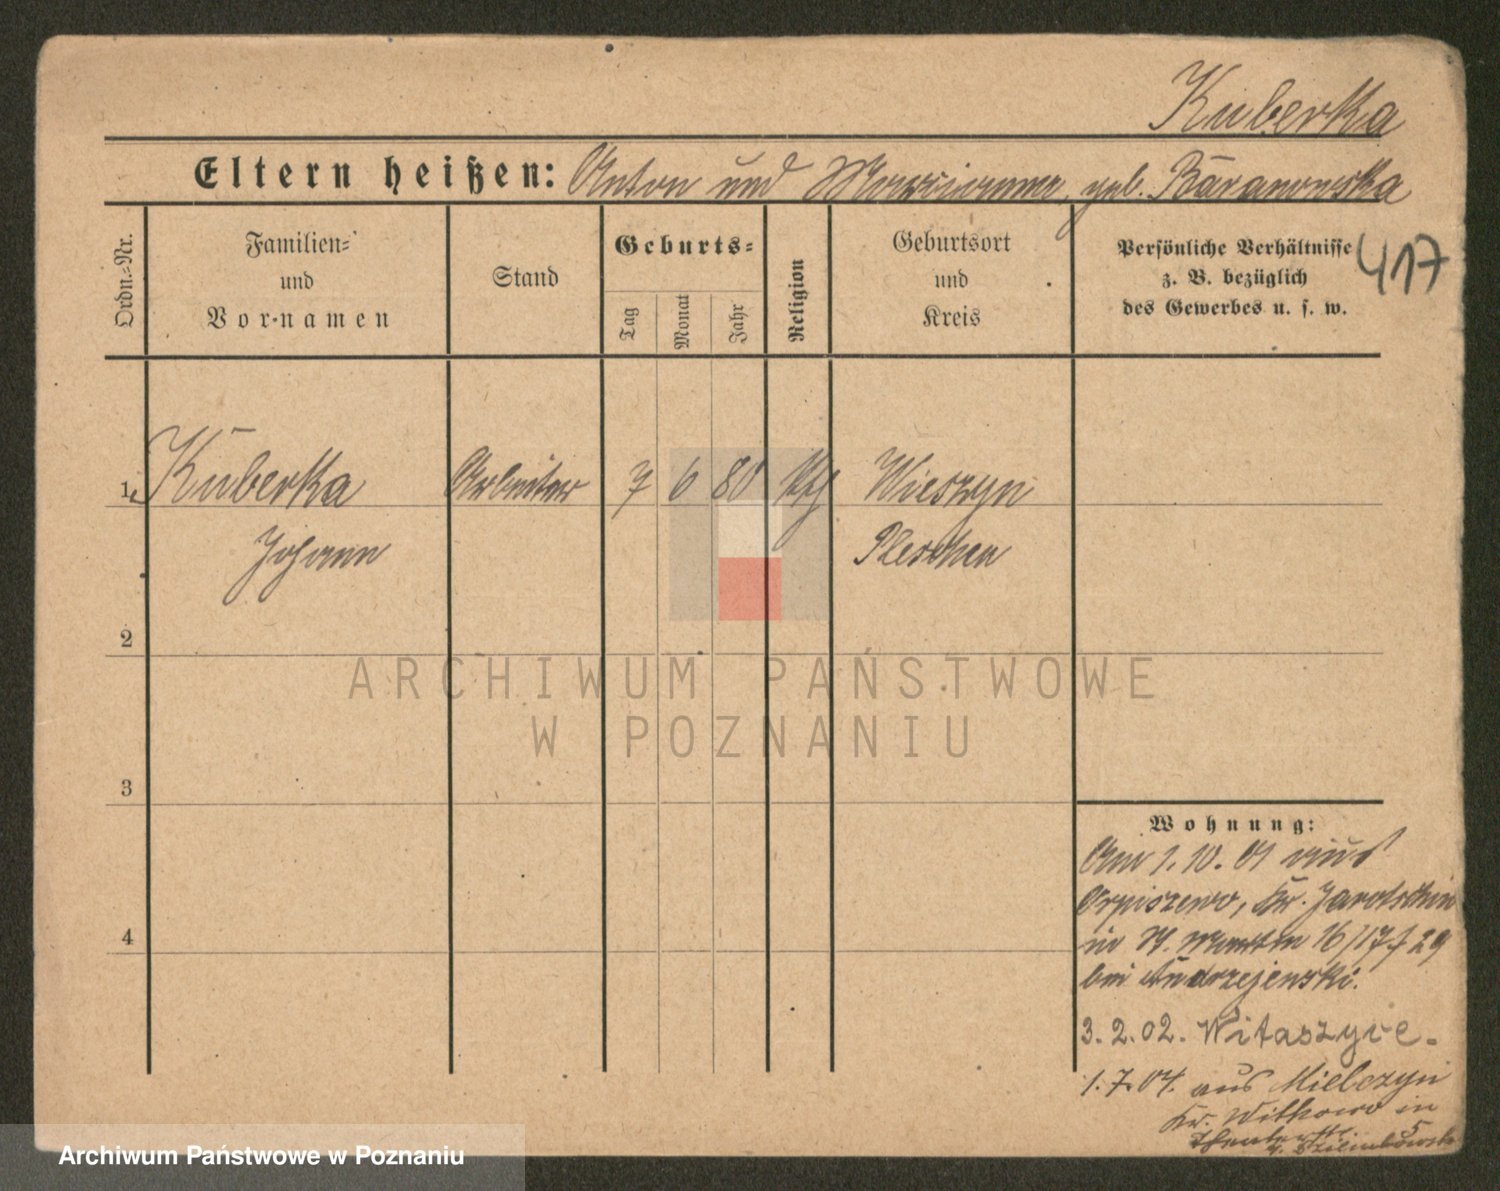 Kuberka
Eltern heißen: Anton und Marianna, geb. Baranowska
Ordn.-Nr.
Familien-
und
Vornamen
Stand
Geburts-
Tag
Monat
Jahr
Religion
Geburtsort
und
Kreis
Persönliche Verhältnisse
z. B. bezüglich
des Gewerbes u. s. w.
417
1. Kuberka Arbeiter 7 6 80 kth Wieszyn
Johann Pleschen
2
ARCHIWUM PAŃSTWOWE
W POZNANIU
3
Wohnung:
Am 1.10.01 aus
Orpiszewo, Kr. Jarotschin
in St. Martin 16/17 29
bei Andrzejewski.
4
3.2.02. Witaszyce.
1.7.04. aus Mielczyn
Kr. Witkowo in
5
Archiwum Państwowe w Poznaniu